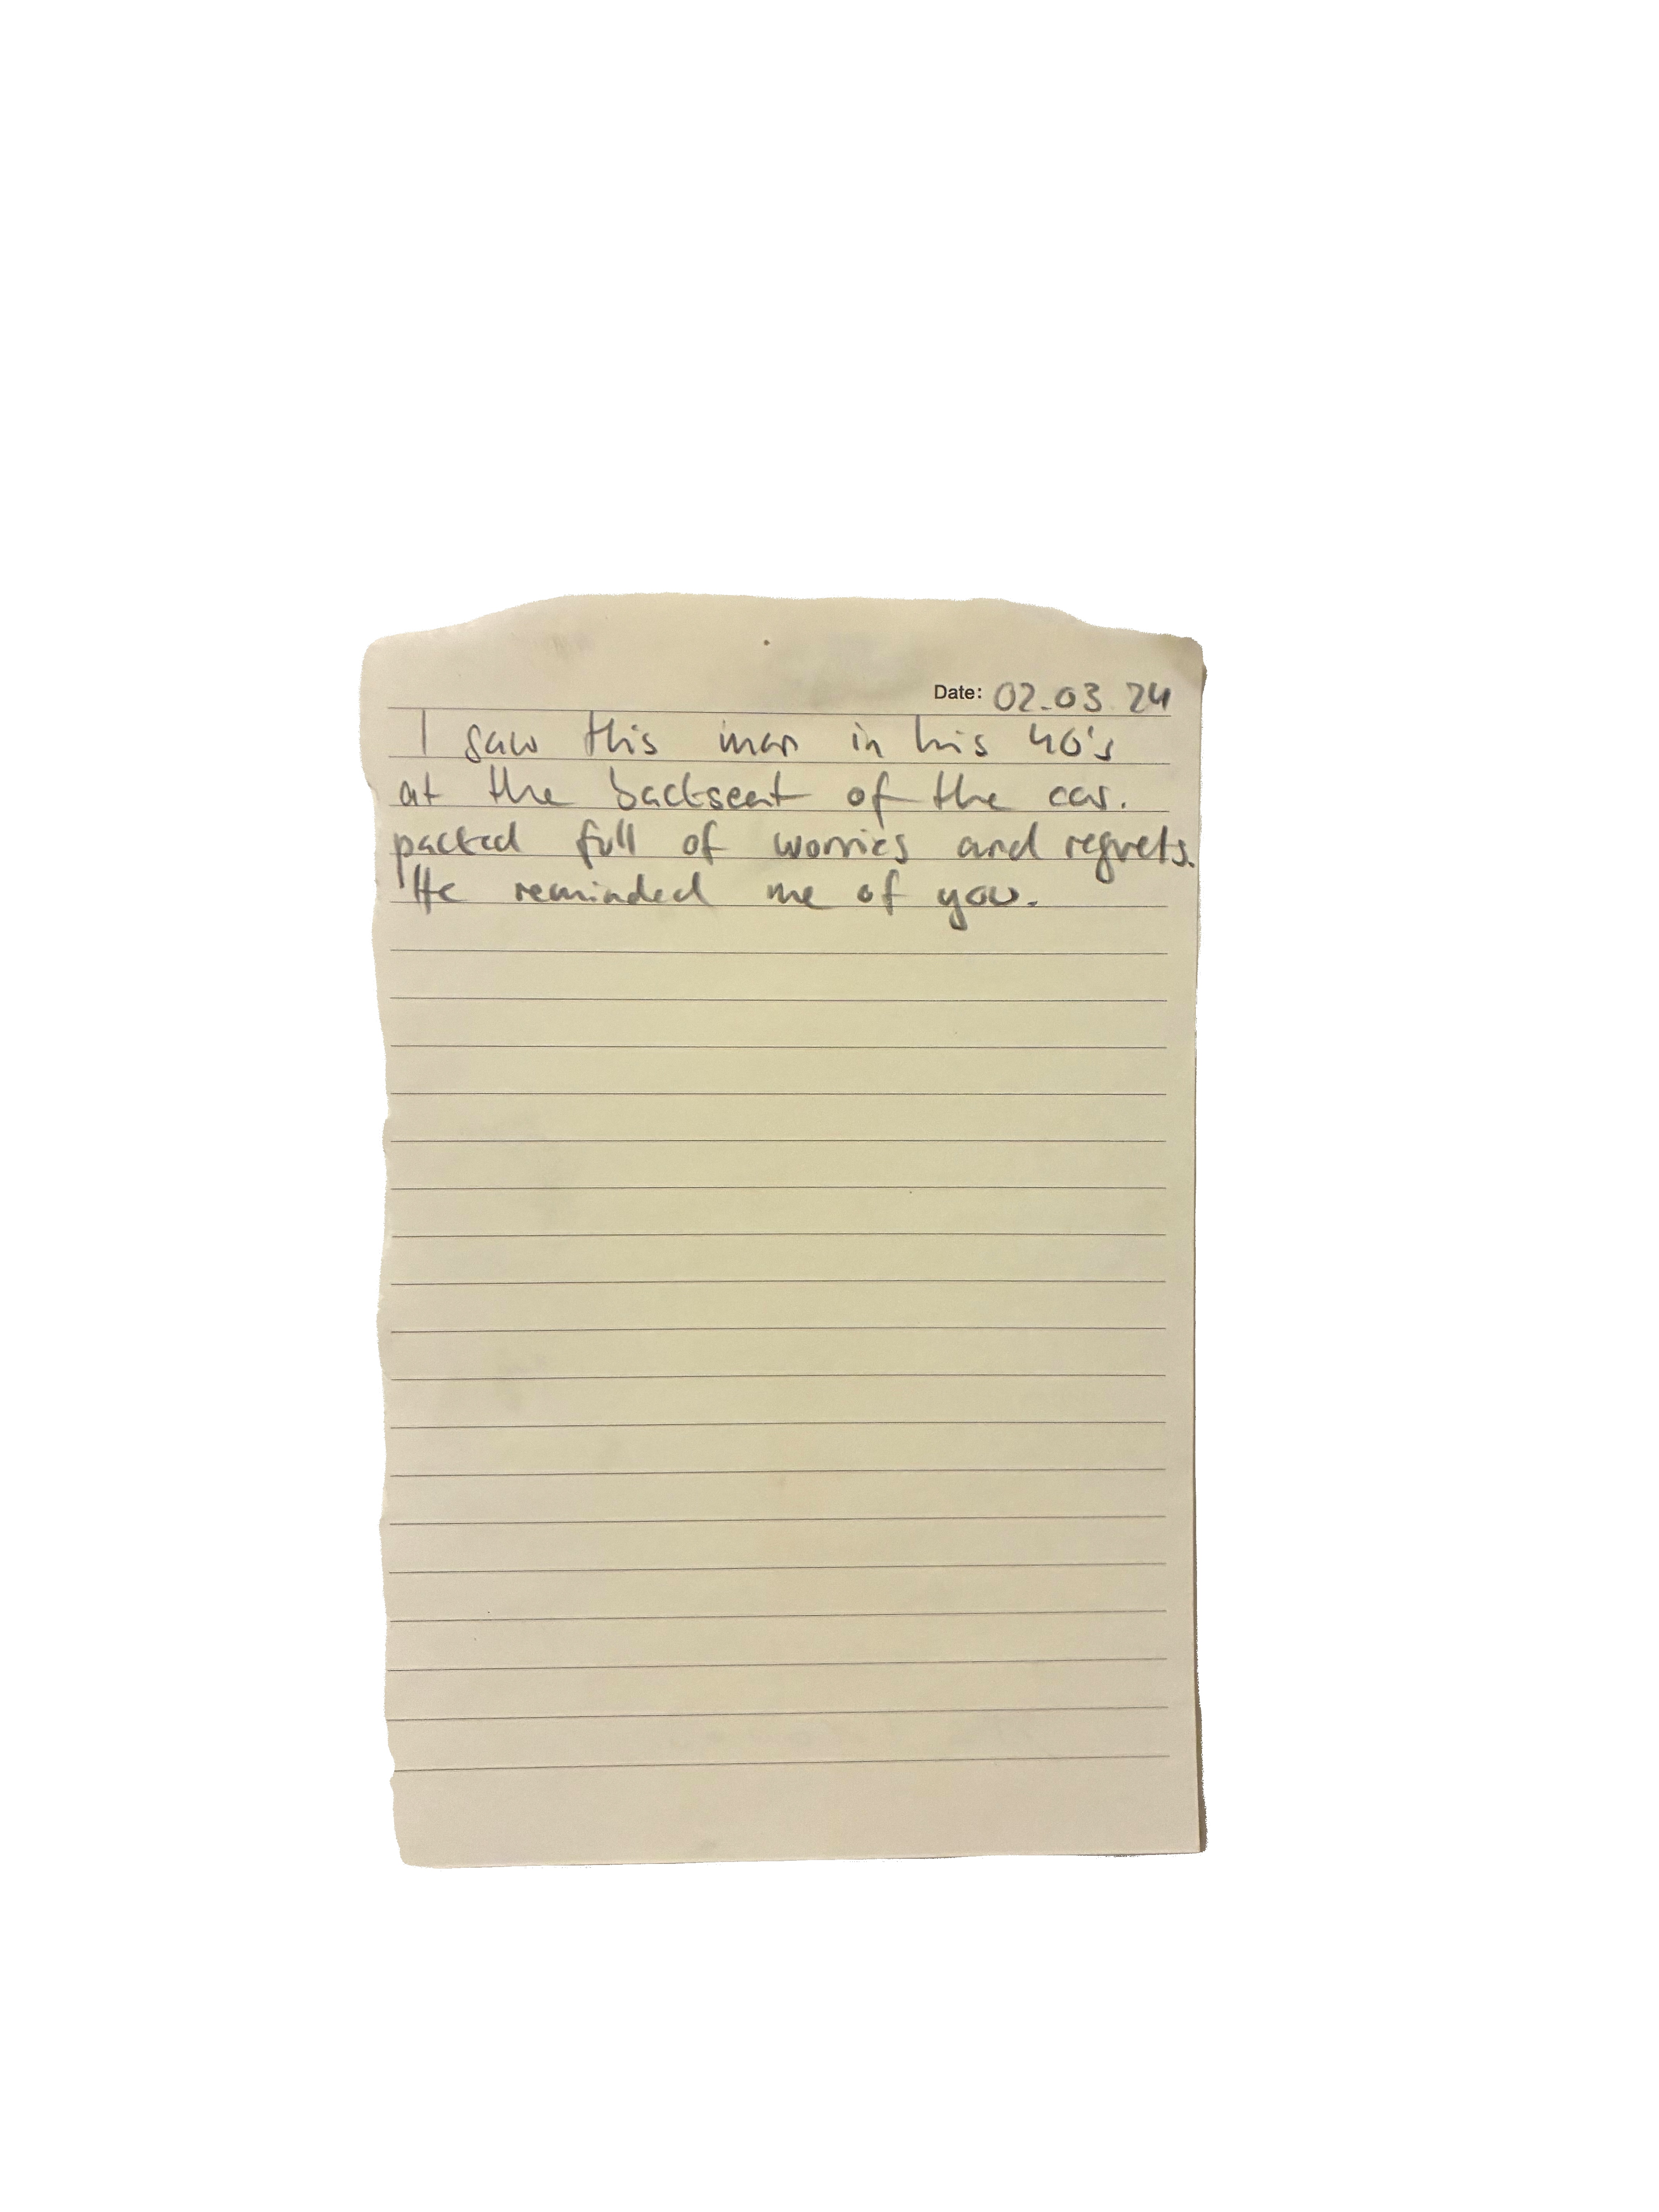 Date: 02.03.24
I saw this man in his 40's
at the backseat of the car.
packed full of worries and regrets.
He reminded me of you.